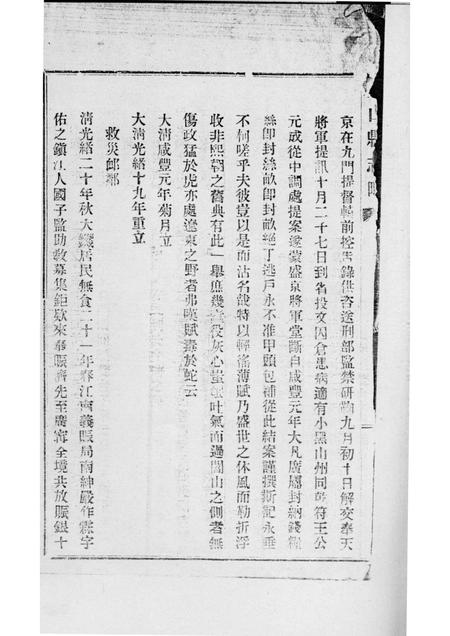 京在九門提督轅前控告錄供咨送刑部監禁研鞫九月初十日解交奉天
將軍提訊十月二十七日到省投文因倉患病適有小黑山州同乾符王公
元成從中調處提案遂蒙盛京將軍堂斷自咸豐元年大凡廣屬封納錢糧
絲卽封絲畝卽封畝絕丁逃戶永不准甲頭包補從此結案謹撰斯記永垂
不朽嗟乎夫彼豈以是而沽名哉特以輕徭薄賦乃盛世之休風而勒折浮
收非熙朝之舊典有此一舉庶幾 役灰心蚩 吐氣而過閭山之側者無
傷政猛於虎亦處遼東之野者弗嘆賦毒於蛇云
大清咸豐元年菊月立
大清光緒十九年重立
救災卹鄰
清光緒二十年秋大饑居民無食二十一年春江南義賑局南紳嚴作霖字
佑之鎮江人國子監助敎募集鉅欵來奉賑濟先至廣甯全境共放賑銀十
山縣志略